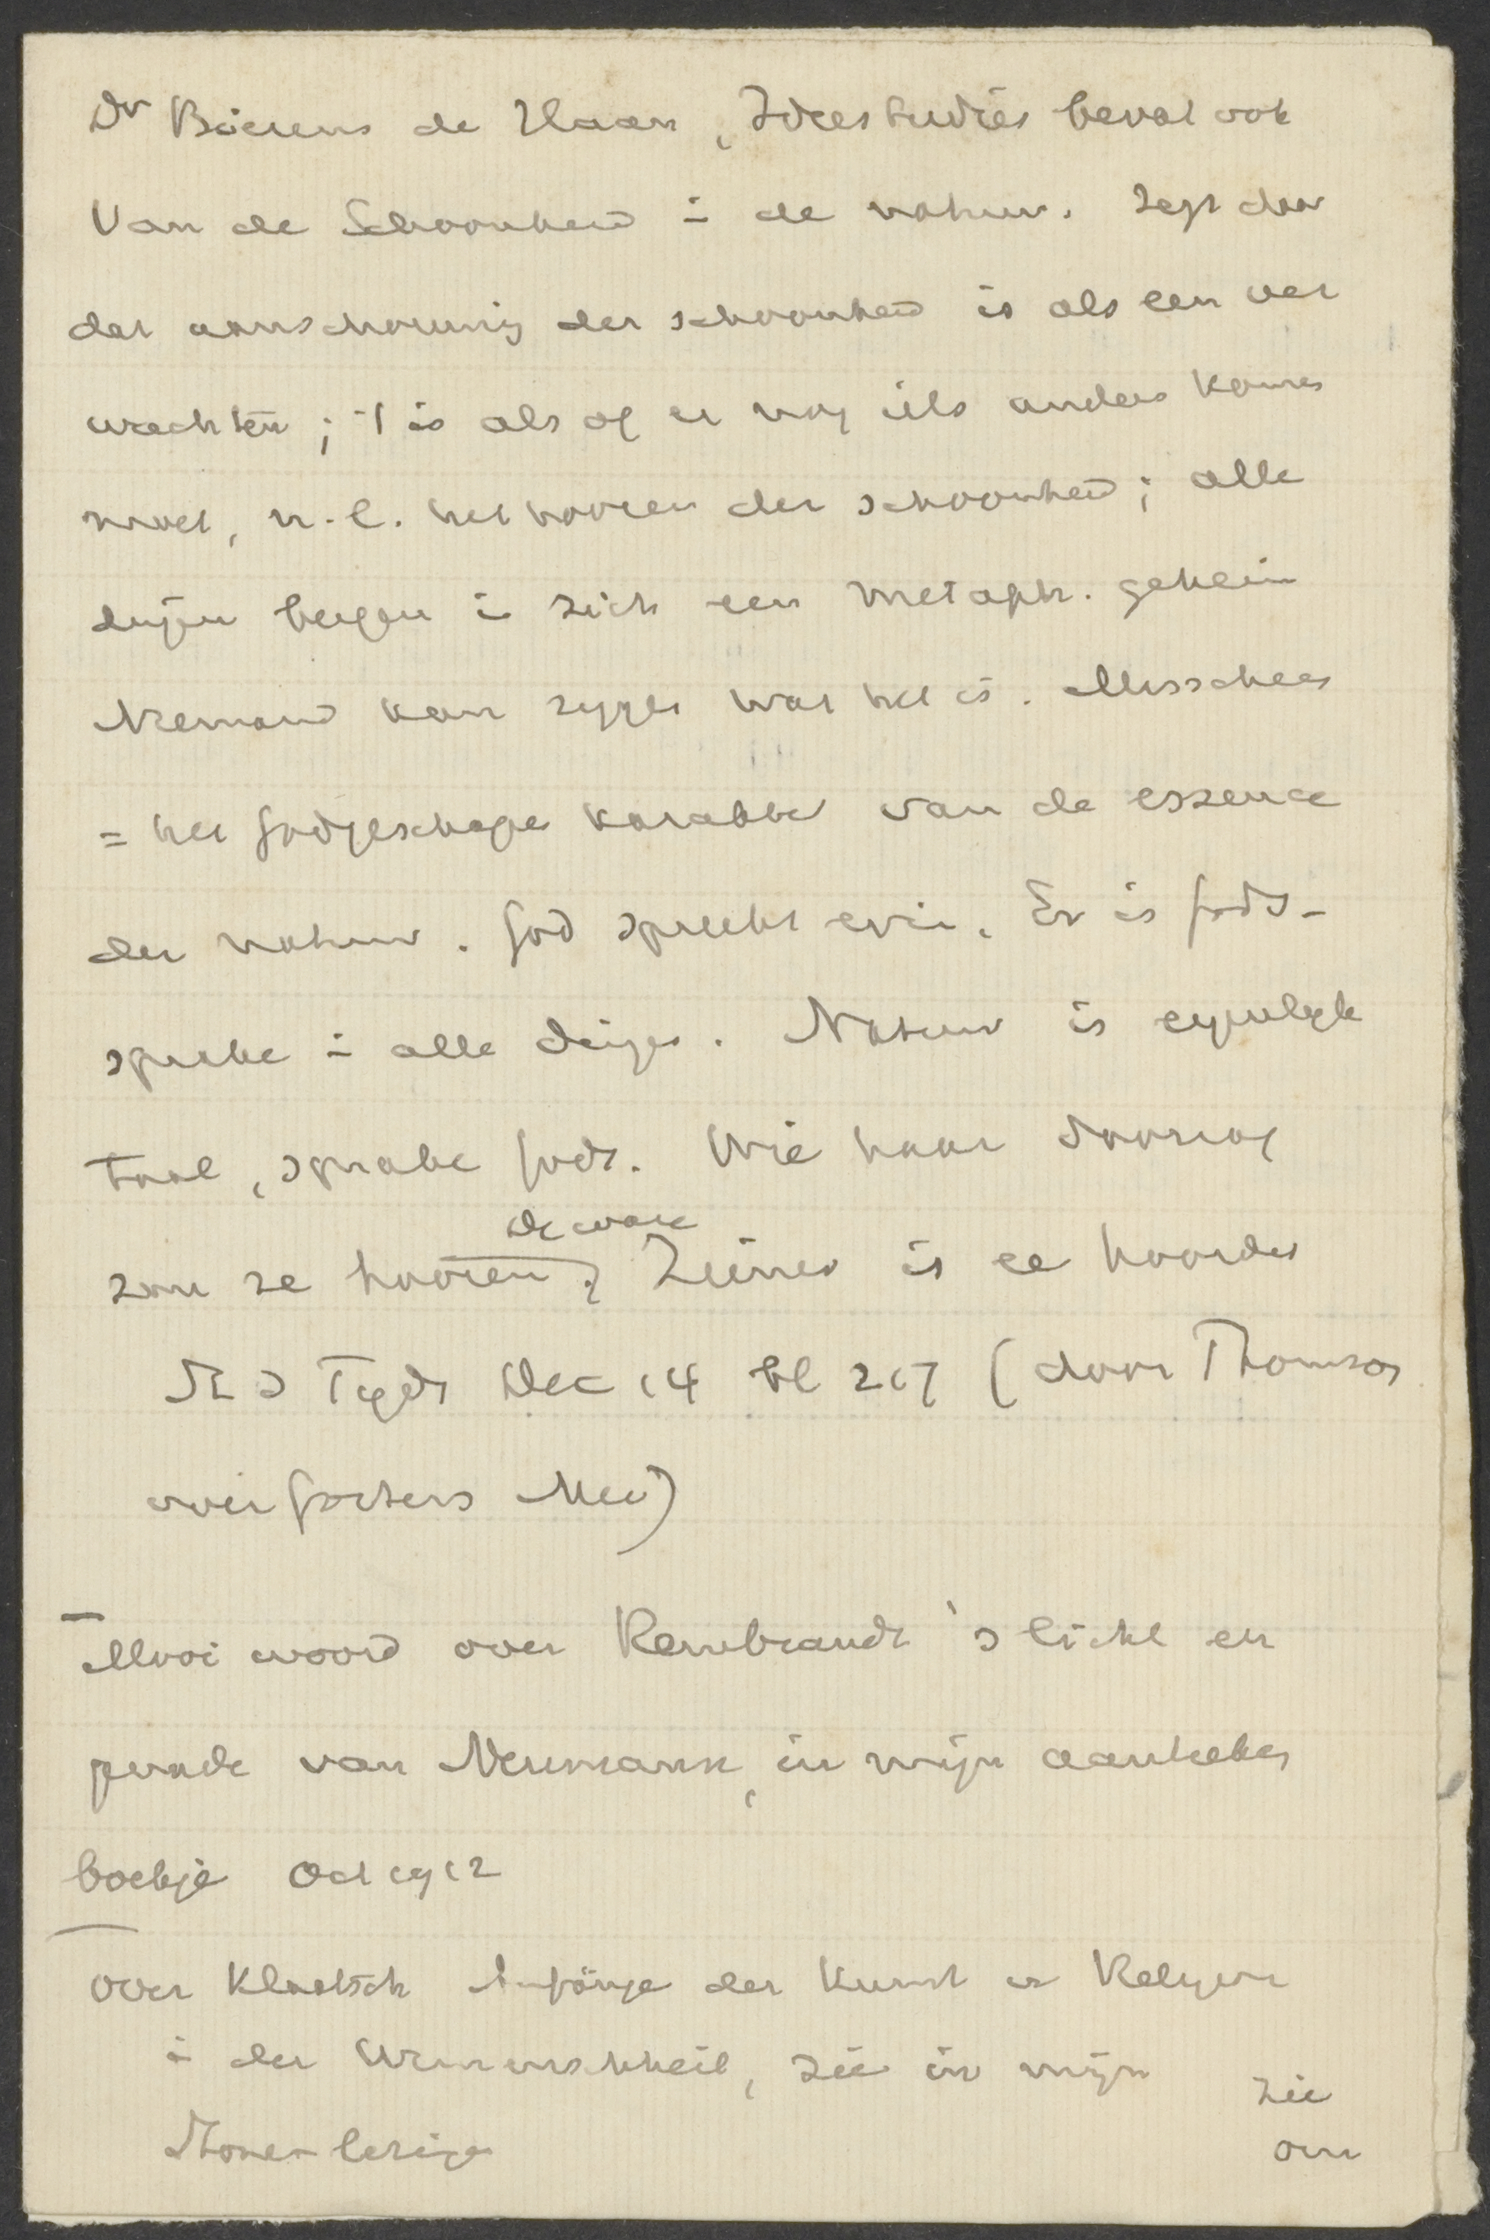 Dr Bierens de Haan, Ideestudies bevat ook
Van de Schoonheid i de natuur. Zegt daar
dat aanschouwing der schoonheid is als een ver
wachten; 't is als of er nog iets anders komen
moet, n.l. het hooren der schoonheid; alle
dingen bergen i zich een metaph. geheim
Niemand kan zeggen wat het is. Misschien
= het godgeschape karakter van de essence
der natuur. God spreekt erin. Er is gods-
sprake i alle dinge. Natuur is eigenlijk
taal, sprake gods. Wie haar doorzag
zou ze hooren, De ware Ziener is ee hoorder
N G Tyds Dec 14 bl 217 (door Thomson
over Gorters Mei)
Mooi woord over Rembrandt's licht en
van Neumann, in mijn aanteeken
boekje Oct 1912
over Klaatsch Anfänge der Kunst u Religion
i der Urmenschheit, zie in mijn
zie
om